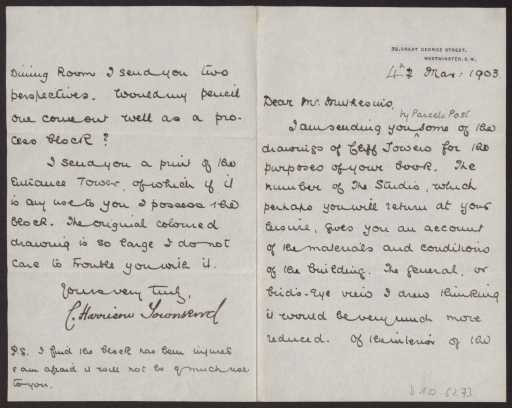 29, GREAT GEORGE STREET,
WESTMINSTER, S.W.
4th Mar: 1903.
Dear Mr. Muthesius,
by Parcels Post
I am sending you some of the
drawings of Cliff Towers for the
purposes of your book. The
number of The Studio, which
perhaps you will return at your
leisure, gives you an account
of the materials and conditions
of the building. The general, or
bird's-Eye view I drew thinking
it would be very much more
reduced. Of the interior of the
Dining Room I send you two
perspectives. Would my pencil
one come out well as a pro-
cess block?
I send you a print of the
Entrance Tower, of which if it
is any use to you I possess the
block. The original coloured
drawing is so large I do not
care to trouble you with it.
Yours very truly,
C. Harrison Townsend
P.S. I find the block has been injured
& am afraid it will not be of much use
to you.